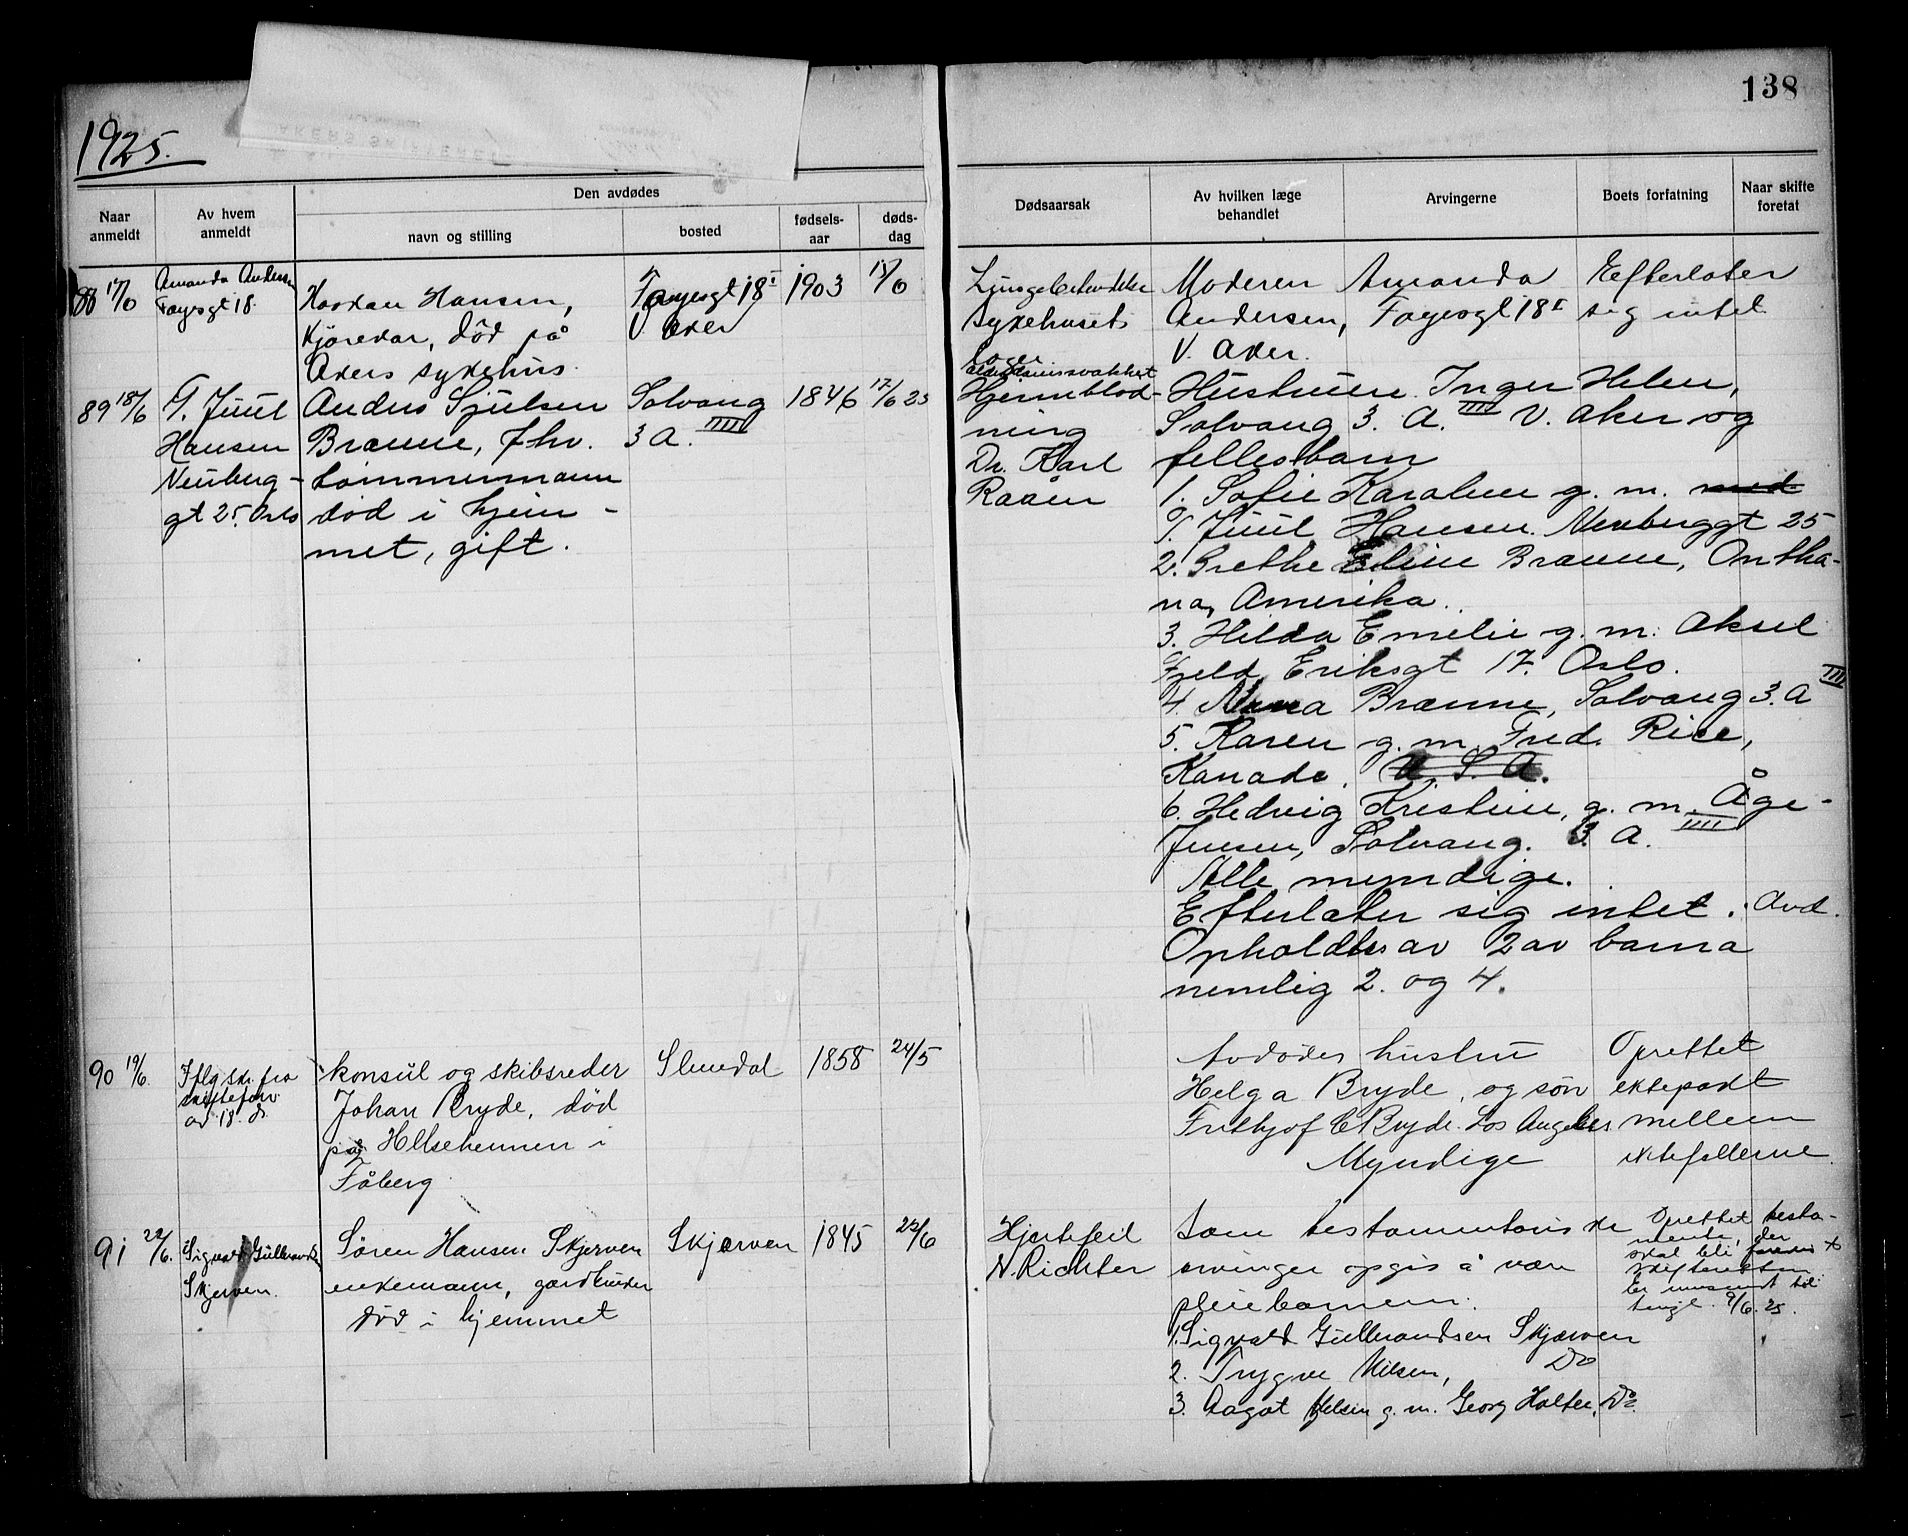 138
1925.
Den avdødes
Naar anmeldt
Av hvem anmeldt
navn og stilling
bosted
fødsels-aar
døds-dag
Dødsaarsak
Av hvilken læge behandlet
Arvingerne
Boets forfatning
Naar skifte foretat
88 17/6
Amanda Andersen
Fayesgt 18.
Haavdan Hansen,
Kjørekar, død på
Akers sykehus.
Fayesgt 18 I
V Aker
1903
15/6
Sykehusets
Moderen Amanda
Andersen, Fayesgt 18 I
V. Aker.
Eefterlater
sig intet
89 18/6
T. Juul
Hansen
Neuberg-
gt 25. Oslo
Anders Sjulsen
Brænne, fhv.
tømmermann
død i hjem-
met, gift.
Solvang
3 A. IIII
1846
17/6 25
alderdomssvakhet
Hjerneblød-
ning
Dr. Karl
Raaen
Hustruen Inger Helene,
Solvang 3. A. IIII V. Aker og
fellesbarn
1. Sofie Karoline g. m. med
T. Juul Hansen. Neuberggt 25
2. Grethe Eline Brænne, Ontha-
na, Amerika.
3. Hilda Emelie g. m. Aksel
Fjeld, Eriksgt 17. Oslo.
4. Nanna Brænne, Solvang 3. A IIII
5. Karen g. m. Fred. Rice,
Kanada. U. S. A.
6. Hedvig Kristine, g. m. Åge-
Jensen, Solvang. 3. A. IIII
Alle myndige.
Efterlater sig intet. Avd.
Opholdtes av 2 av barna
nemlig 2. og 4.
90 19/6.
Iflg skr. fra
skifteforv.
av 18. ds.
konsul og skibsreder
Johan Bryde, død
på Helseheimen i
Fåberg
Slemdal
1858
24/5
Avdødes hustru
Helga Bryde, og søn
Frithjof C Bryde. Los Angeles
Myndige
Oprettet
ektepakt
mellem
ektefellerne.
91 22/6.
Sigvald Gulbrandsen
Skjerven.
Søren Hansen Skjerven
enkemann, gardbruker
død i hjemmet
Skjerven
1845
22/6
Hjertefeil
N. Richter
Som testamentariske
arvinger opgis å være
pleiebarnene:
1. Sigvald Gulbrandsen Skjerven
2. Trygve Nilsen, Do
3. Aagot Nilsen g. m. Georg Holter, Do.
Oprettet testa-
mente, der
skal bli
skifteretten
Er innsendt til
9/6. 25.